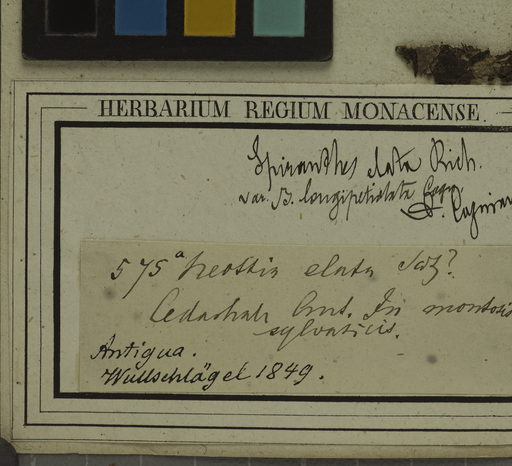 HERBARIUM REGIUM MONACENSE
Spiranthes elata Rich.
var. B. longipetiolata Cogn.
575ª Neottia elata Sw?
Cedarhall Ant. In montosis
sylvaticis.
Antigua.
Wullschlägel 1849.